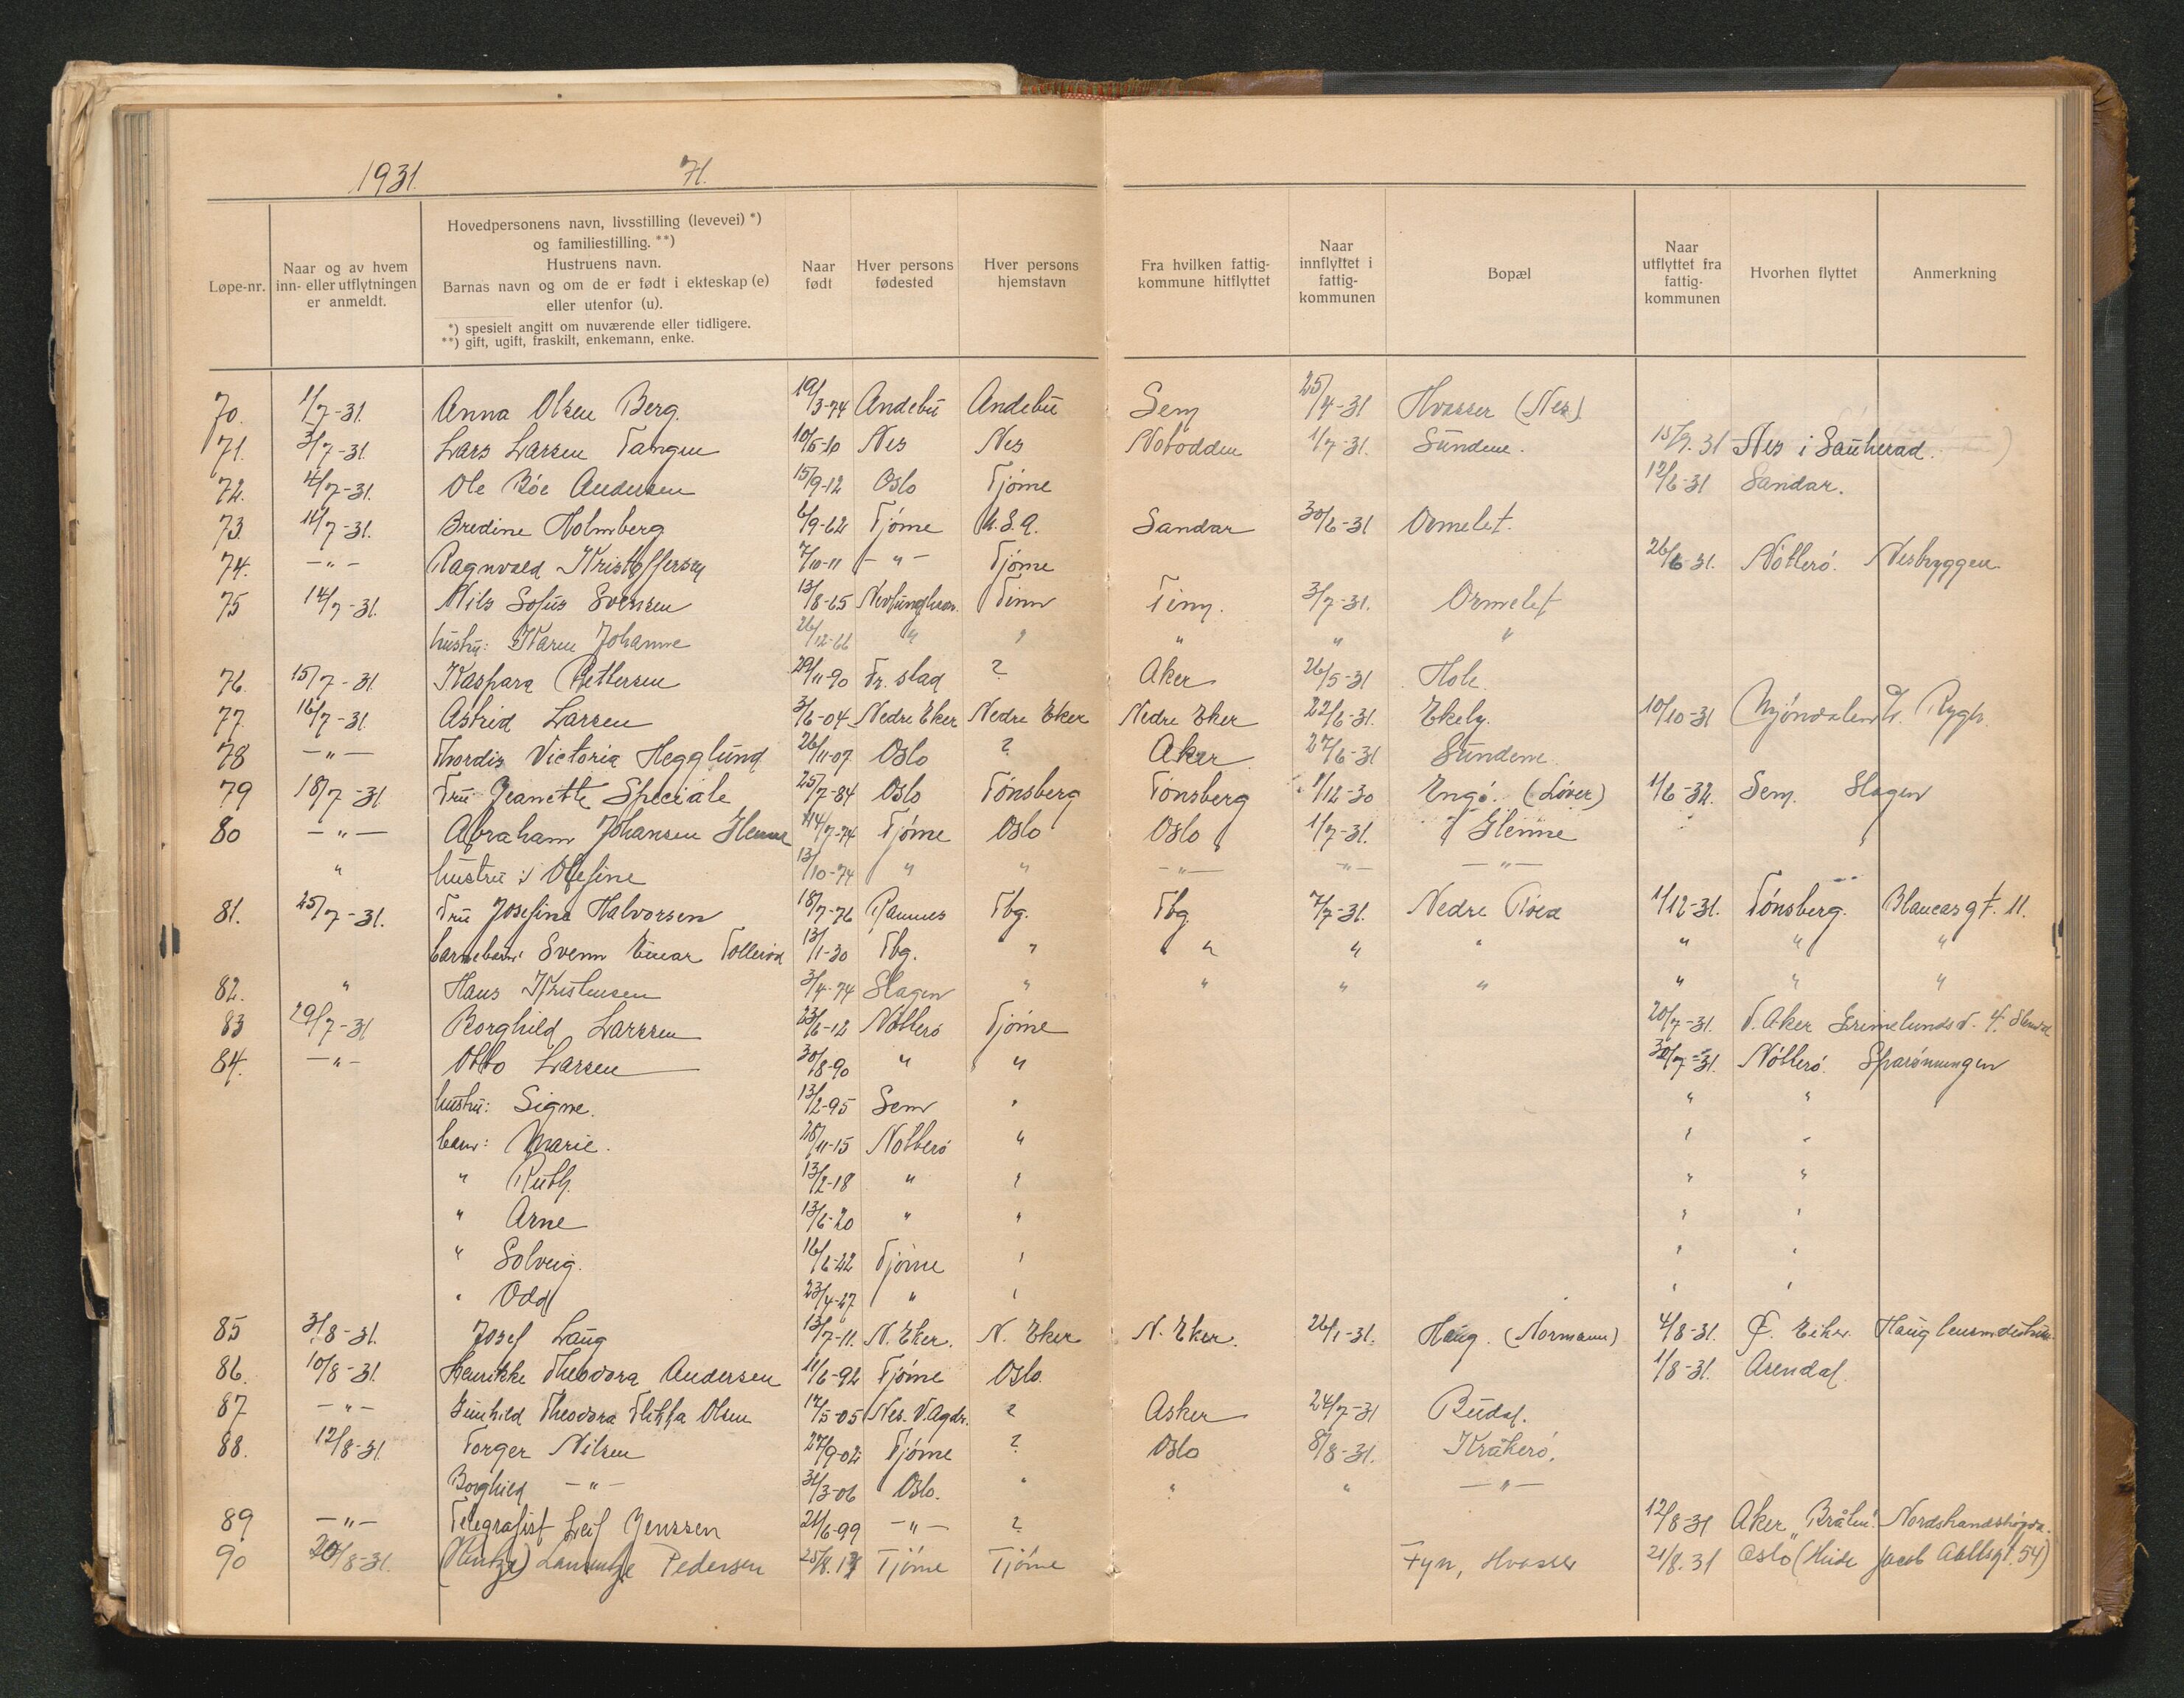 1931. 71.
Løpe-nr. Naar og av hvem inn- eller utflytningen er anmeldt. Hovedpersonens navn, livsstilling (levevei) *) og familiestilling. **) Hustruens navn. Barnas navn og om de er født i ekteskap (e) eller utenfor (u). *) spesielt angitt om nuværende eller tidligere. **) gift, ugift, fraskilt, enkemann, enke. Naar født Hver persons fødested Hver persons hjemstavn Fra hvilken fattig-kommune hitflyttet Naar innflyttet i fattig-kommunen Bopæl Naar utflyttet fra fattig-kommunen Hvorhen flyttet Anmerkning
70. 1/7-31. Anna Olsen Berg. 19/3-74 Andebu Andebu Sem 25/4-31 Hvasser (Nes)
71. 3/7-31. Lars Larsen Tangen 10/5-10 Nes Nes Notodden 1/7-31. Sundene. 15/7.31 Nes i Sauherad.
72. 4/7-31. Ole Bøe Andersen 15/9-12 Oslo Tjøme 12/6-31 Sandar.
73. 11/7-31. Bredine Holmberg 6/9-62 Tjøme U.S.A. Sandar 30/6-31 Ormelet.
74. -"- Ragnvald Kristoffersen 7/10-11 -"- Tjøme 26/6-31. Nøtterø. Nesbryggen.
75 14/7-31. Nils Sofus Svensen 13/8-65 Nevlunghavn. Tinn Tinn. 3/7-31. Ormelet
hustru: Karen Johanne 26/12-66 " " " " "
76. 15/7-31. Kaspara Pettersen 29/11-90 Fr. stad ? Aker 26/5-31 Hole.
77. 16/7-31 Astrid Larsen 3/6-04 Nedre Eker Nedre Eker Nedre Eker 22/6-31. Ekely. 10/10-31 Mjøndalen Rygh.
78 -"- Thordis Victoria Hegglund 26/11-07 Oslo ? Aker 27/6-31 Sundene
79 18/7-31 Fru Jeanette Speciale 25/7-84 Oslo Tønsberg Tønsberg 1/12-30 Engø. (Løver) 1/6-32. Sem. Slagen
80 -"- Abraham Johansen Glenne 14/7-74 Tjøme Oslo Oslo 1/7-31. Glenne
" hustru: Olefine 13/10-74 " " -"- -"- -"-
81. 25/7-31. Fru Josefine Halvorsen 18/7-76 Ramnes Tbg. Tbg. 7/7-31. Nedre Røed 1/12-31. Tønsberg. Blancasgt. 11.
barnebarn: Svenn Einar Tollerød 13/1-30 Tbg. " " " " " " "
82. " Hans Kristensen 3/4-74 Slagen " " " " " " "
83 29/7-31 Borghild Larssen 23/6-12 Nøtterø Tjøme 20/7-31. V. Aker Grimelundsv. 4.
84. -"- Otto Larsen 30/8-90 " " 30/7-31. Nøtterø.
hustru: Signe. 13/2-95 Sem " " "
barn: Marie. 28/11-15 Nøtterø " " "
" Ruth. 13/2-18 " " " "
" Arne 13/6-20 " " " "
" Solveig. 16/6-22 Tjøme " " "
" Odd 23/4-27 " " " "
85 3/8-31. Josef Laug 13/7-11. N. Eker. N. Eker N. Eker. 26/1-31. Haug. (Normann) 4/8-31. Ø. Eiker
86. 10/8-31. Henrikke Theodora Andersen 11/6-92 Tjøme Oslo. 1/8-31. Arendal.
87 -"- Gunhild Theodora Olsen 12/5-05 Nes. V. Agder. ? Asker 24/7-31 Budal.
88. 12/8-31. Torger Nilsen 27/9-02 Tjøme ? Oslo 8/8-31. Kråkerø.
Borghild -"- 31/3-06 Oslo. " " " -"-
89 -"- Telegrafist Leif Jenssen 21/6-99 -"- ? 12/8-31 Aker "Bråten".
90 20/8-31. Pedersen Tjøme Tjøme Fyn, Hvasser 21/8.31 Oslo (Jacob Aallsgt. 54)